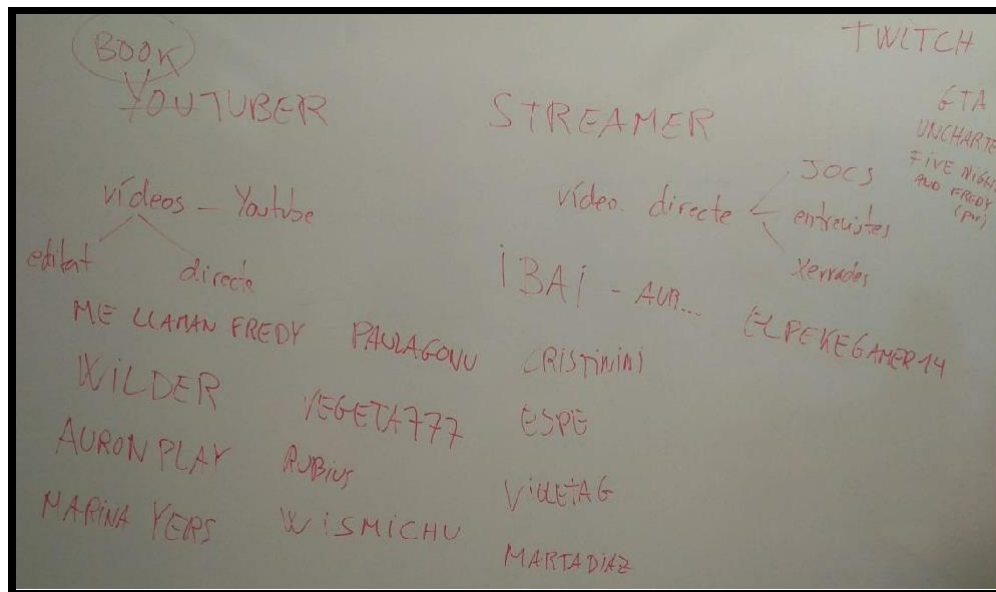 BOOK
YOUTUBER
vídeos - Youtube
editat
directe
ME LLAMAN FREDY
PAULAGONU
WILDER
VEGETA777
AURON PLAY
RUBIUS
MARINA YERS
WISMICHU
STREAMER
vídeo. directe
JOCS
entrevistes
xerrades
IBAI - AUR...
ELPEKEGAMER14
CRISTININI
ESPE
VIOLETAG
MARTADIAZ
TWITCH
GTA
UNCHARTE
FIVE NIGH
AND FREDY